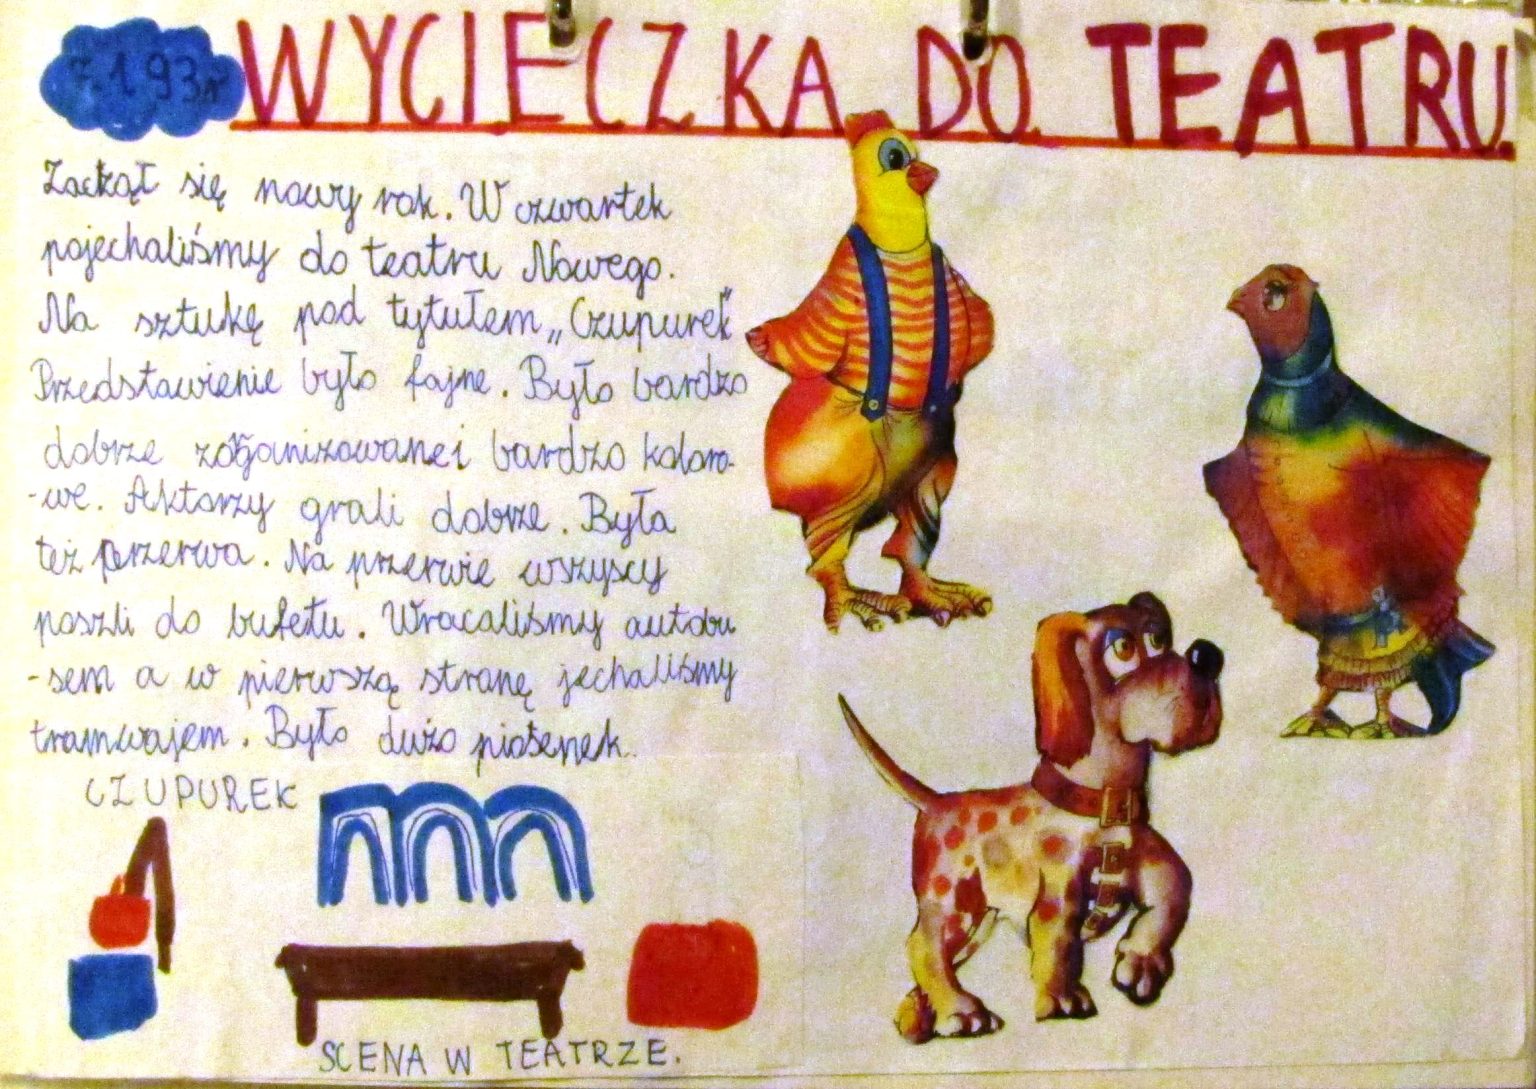 7.1.93r
WYCIECZKA DO TEATRU.
Zaczął się nowy rok. W czwartek
pojechaliśmy do teatru Nowego.
Na sztukę pod tytułem „Czupurek"
Przedstawienie było fajne. Było bardzo
dobrze zorganizowane i bardzo koloro-
-we. Aktorzy grali dobrze. Była
też przerwa. Na przerwie wszyscy
poszli do bufetu. Wracaliśmy autobu
-sem a w pierwszą stronę jechaliśmy
tramwajem. Było dużo piosenek.
CZUPUREK
SCENA W TEATRZE.